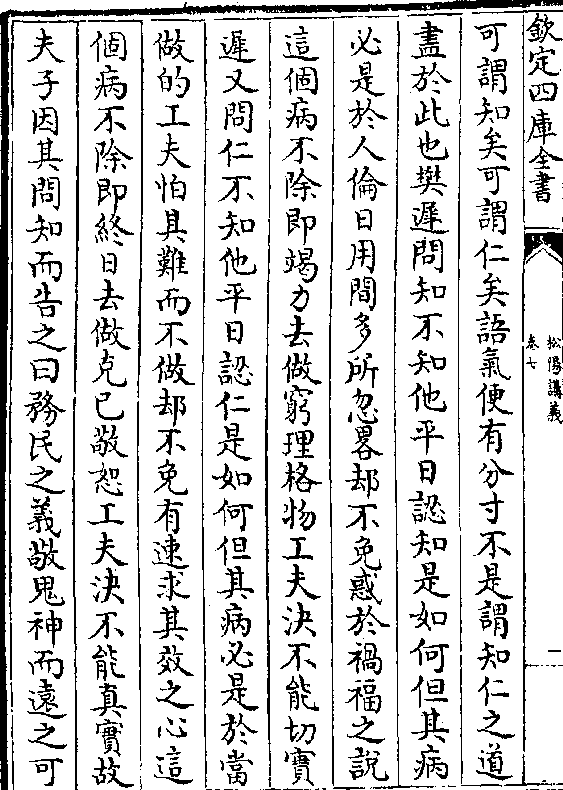 欽定四庫全書
松陽講義
卷七
一
可謂知矣可謂仁矣語氣便有分寸不是謂知仁之道
盡於此也樊遲問知不知他平日認知是如何但其病
必是於人倫日用間多所忽畧却不免惑於禍福之說
這個病不除即竭力去做窮理格物工夫決不能切實
遲又問仁不知他平日認仁是如何但其病必是於當
做的工夫怕其難而不做却不免有速求其效之心這
個病不除即終日去做克已敬恕工夫決不能真實故
夫子因其問知而告之曰務民之義敬鬼神而遠之可